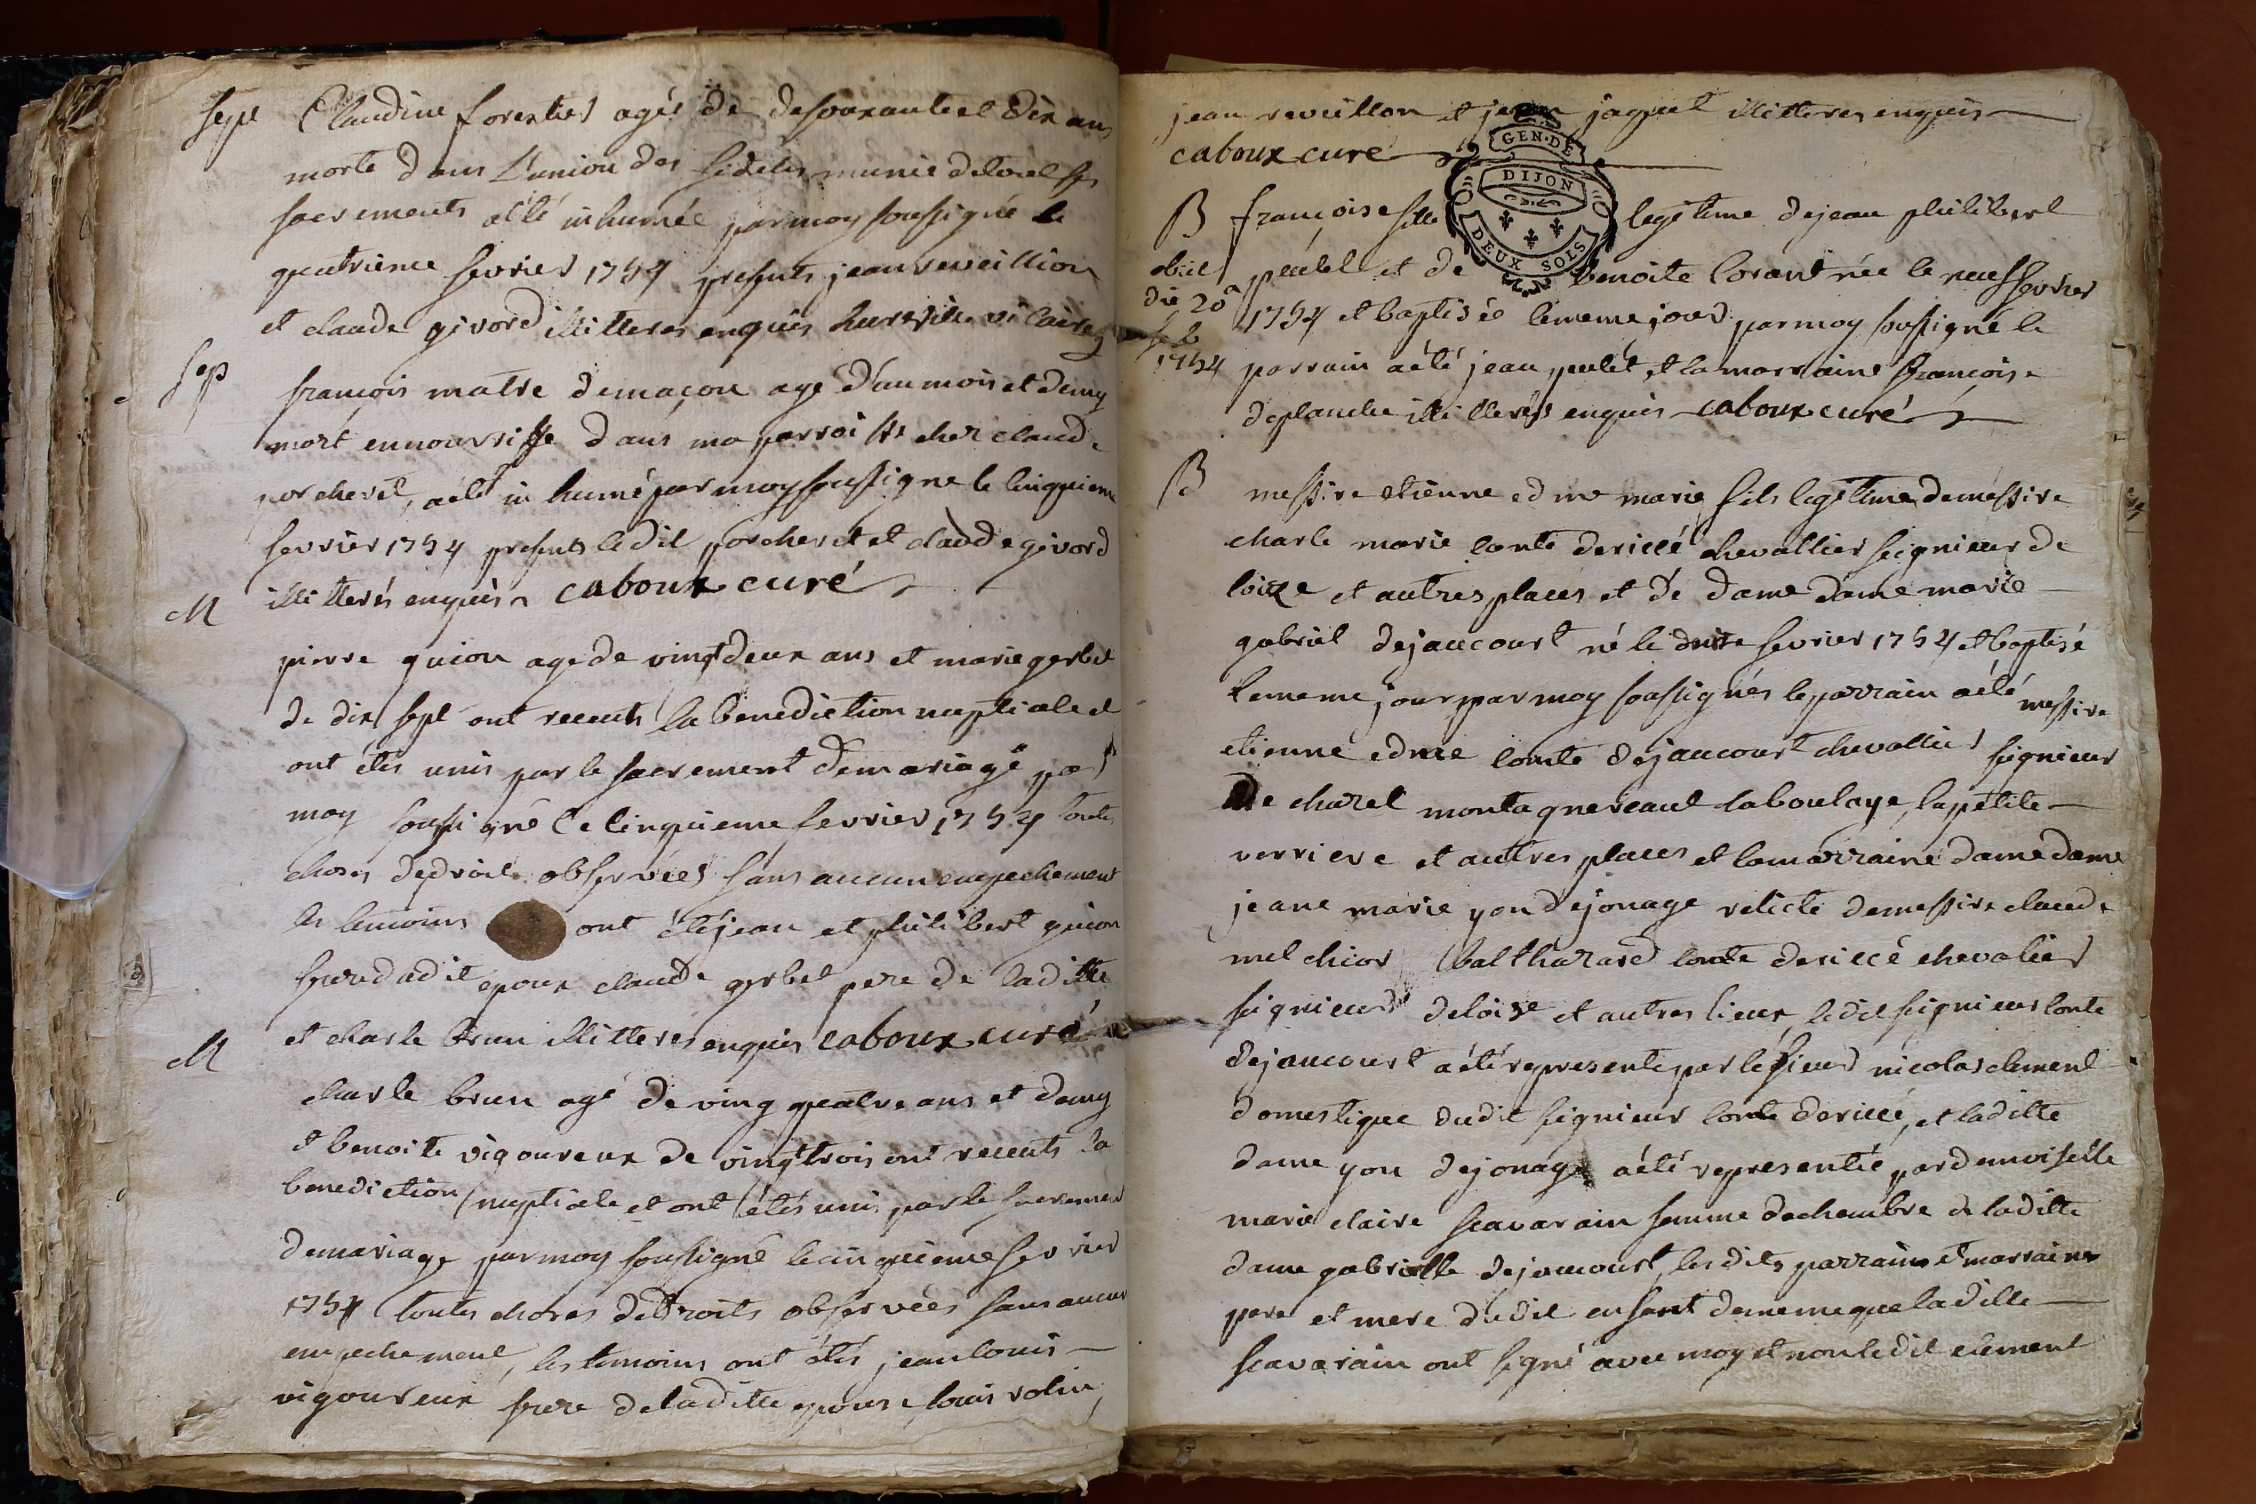 sepe Claudine forestier agée de desoixanteet dix ans
morte dans L'union des fideles munie detout ses
sacrements a été inhumée parmoy soussigné le
quatrieme fevrier 1754 presents jean reveillion
et claude givord illitteres enquis vicaire
sep françois matre demaçon agé d'un mois et demy
mort ennourrisse dans ma parroisse chez claude
porcheret, a été in humé par moy soussigne le cinquieme
fevrier 1754 presents ledit porcheret et claude givord
illitterés enquis caboux curé
M
pierre guion agede vingtdeux ans et marie gerbet
de dix sept ont receuts la benediction nuptiale et
ont étés unis par le sacrement demariage par
moy soussigné le cinquieme fevrier 1754 toutes
choses dedroit observées sans aucun empechement
les temoins ont été jean et philibert guion
frere dudit epoux claude gerbet pere de laditte
et charle brun illitteres enquis caboux curé
M
charle brun agé de ving quatre ans et demy
et benoite vigoureux de vingttrois ont receuts la
benediction nuptiale et ont étés unis par le sacrement
demariage par moy soussigné lecinquieme fevrier
1754 toutes choses dedroits observées sans aucun
empechement, les temoins ont étés jean louis
vigoureux frere deladitte epouse, louis rolin,
jean reveillon et jean jaquet illitteres enquis
caboux cure
GEN. DE
DIJON
DEUX SOLS
B françoise fille legitime dejean philibert
obiit peutet et de benoite lorand née le neuf fevrier
die 20a 1754 et baptisée lememe jour par moy soussigné le
feb
1754 parrain a été jean peutet, et la marraine françoise
deplanche illitterés enquis caboux curé
B messire etienne edme marie fils legitime demessire
charle marie comte dericcé chevallier seignieur de
loize et autres places et de dame dame marie
gabriel dejaucourt né le fevrier 1754 et baptisé
lememe jour par moy soussignés le parrain a été messire
etienne edme comte dejaucourt chevallier seignieur
De chazel montagnereaut laboulaye, lapetite
verriere et autres places et lamarraine dame dame
jeane marie yon dejonage relicte demessire claude
melchior balthazard comte dericcé chevalier
seignieur deloize et autres lieux, ledit seignieur comte
dejaucourt a été representé par le sieur nicolas clement
domestique dudit seignieur comte dericcé, et laditte
dame yon dejonage a été representée par demoiselle
marie claire scavarain femme dechambre de laditte
dame gabrielle dejaucourt, les dits parrains et marraines
pere et mere dudit enfant dememe que laditte
scavarain ont signé avec moy et non ledit clement